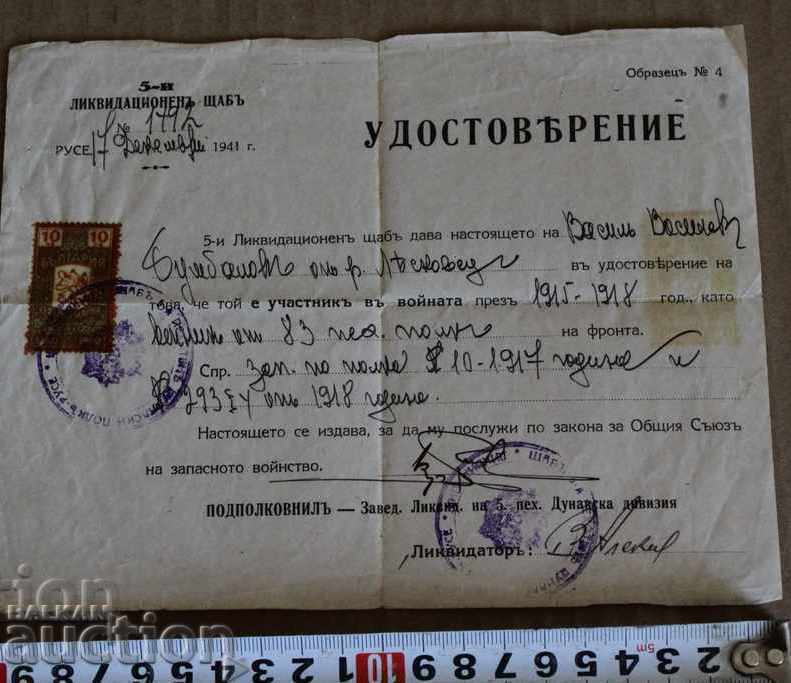 Образецъ № 4
5-и
ЛИКВИДАЦИОНЕНЪ ЩАБЪ
№ 1492
РУСЕ, 17 Декемврий 1941 г.
УДОСТОВѢРЕНИЕ
5-и Ликвидационенъ щабъ дава настоящето на Василъ Василевъ
от гр. Лѣсковецъ въ удостоверение на
това, че той е участникъ въ войната презъ 1915-1918 год., като
от 83 пех. полкъ на фронта.
Спр. зап. по полка 10-1917 година и
293 от 1918 година.
Настоящето се издава, за да му послужи по закона за Общия Съюзъ
на запасното войнство.
ПОДПОЛКОВНИЛЪ — Завед. Ликвид. на 5. пех. Дунавска дивизия
Ликвидаторъ:
10 10
БЪЛГАРИЯ
BALKAN
auction
5m